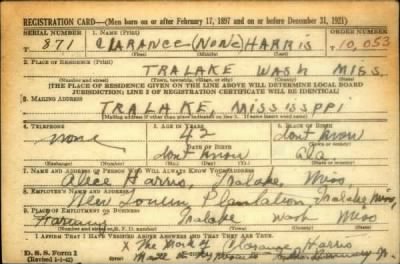 REGISTRATION CARD—(Men born on or after February 17, 1897 and on or before December 31, 1921)
SERIAL NUMBER 1. NAME (Print) ORDER NUMBER
871 CLARANCE (NONE) HARRIS 10,053
2. PLACE OF RESIDENCE (Print)
TRALAKE WASH MISS.
(Number and street) (Town, township, village, or city) (County) (State)
[THE PLACE OF RESIDENCE GIVEN ON THE LINE ABOVE WILL DETERMINE LOCAL BOARD
JURISDICTION; LINE 2 OF REGISTRATION CERTIFICATE WILL BE IDENTICAL]
3. MAILING ADDRESS
TRALAKE, MISSISSPPI
[Mailing address if other than place indicated on line 2. If same insert word same]
4. TELEPHONE 5. AGE IN YEARS 6. PLACE OF BIRTH
none 42 dont know
DATE OF BIRTH
dont know Ala
(Exchange) (Number) (Mo.) (Day) (Yr.) (Town or county) (State or country)
7. NAME AND ADDRESS OF PERSON WHO WILL ALWAYS KNOW YOUR ADDRESS
Alice Harris, Tralake, Miss
8. EMPLOYER'S NAME AND ADDRESS
Plantation, Tralake Miss,
9. PLACE OF EMPLOYMENT OR BUSINESS
Tralake Wash Miss
(Number and street or R. F. D. number) (Town) (County) (State)
I AFFIRM THAT I HAVE VERIFIED ABOVE ANSWERS AND THAT THEY ARE TRUE.
X The Mark of Clarance Harris
D. S. S. Form 1
(Revised 1-1-42)